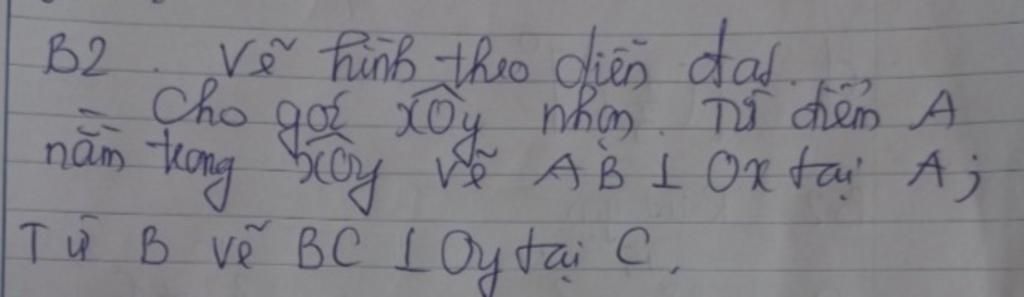 B2. Vẽ hình theo diễn đạt.
- Cho góc xOy nhọn. Từ điểm A
nằm trong xOy vẽ AB ⊥ Ox tại A;
Từ B vẽ BC ⊥ Oy tại C.